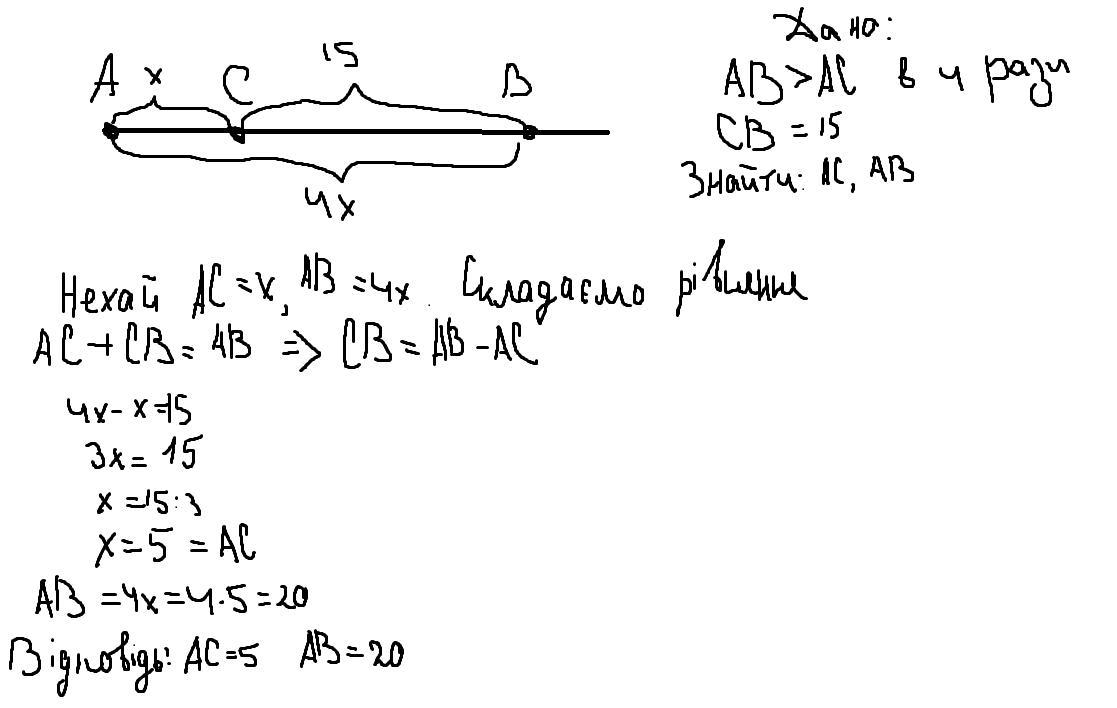 15
A x C B
4x
Дано:
AB > AC в 4 рази
CB = 15
Знайти: AC, AB
Нехай AC = x, AB = 4x. Складаємо рівняння
AC + CB = AB => CB = AB - AC
4x - x = 15
3x = 15
x = 15:3
x = 5 = AC
AB = 4x = 4·5 = 20
Відповідь: AC = 5 AB = 20